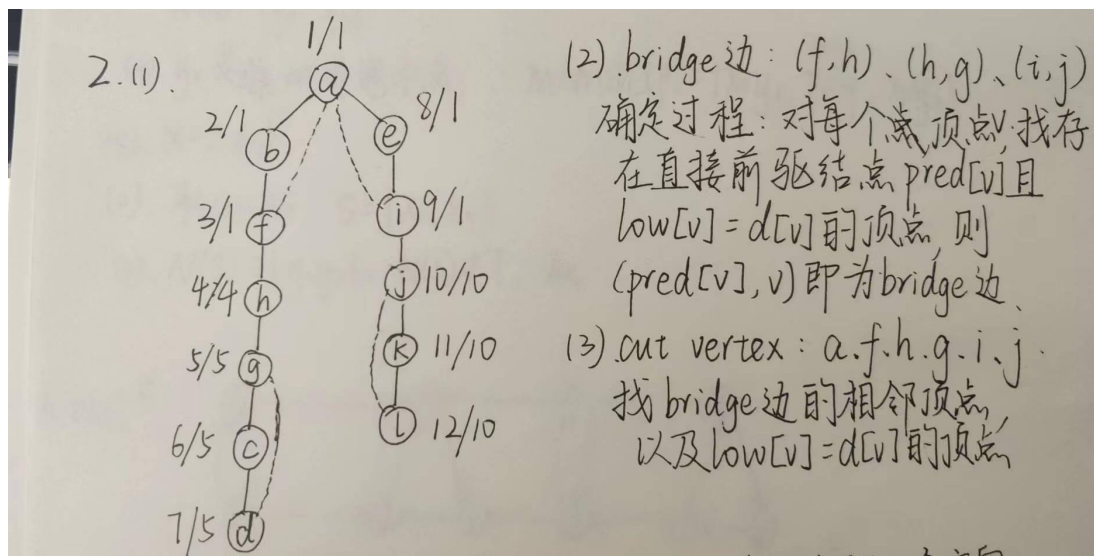 2.(1).
1/1
a
2/1
b
8/1
e
3/1
f
9/1
i
4/4
h
10/10
j
5/5
g
11/10
k
6/5
c
12/10
l
7/5
d
(2) bridge边: (f,h)、(h,g)、(i,j)
确定过程: 对每个点顶点v,找存
在直接前驱结点pred[v]且
low[v]=d[v]的顶点,则
(pred[v],v)即为bridge边、
(3).cut vertex: a.f.h.g.i.j.
找bridge边的相邻顶点,
以及low[v]=d[v]的顶点